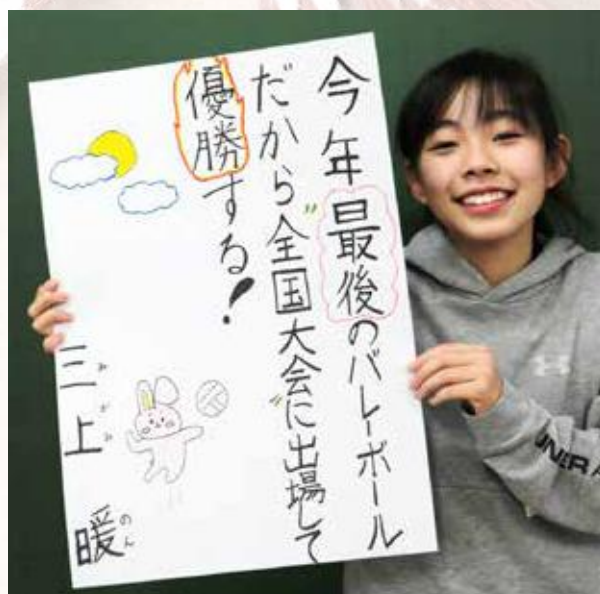 今年最後のバレーボール
だから"全国大会"に出場して
優勝する!
三上 暖
みかみ
のん
UNER A